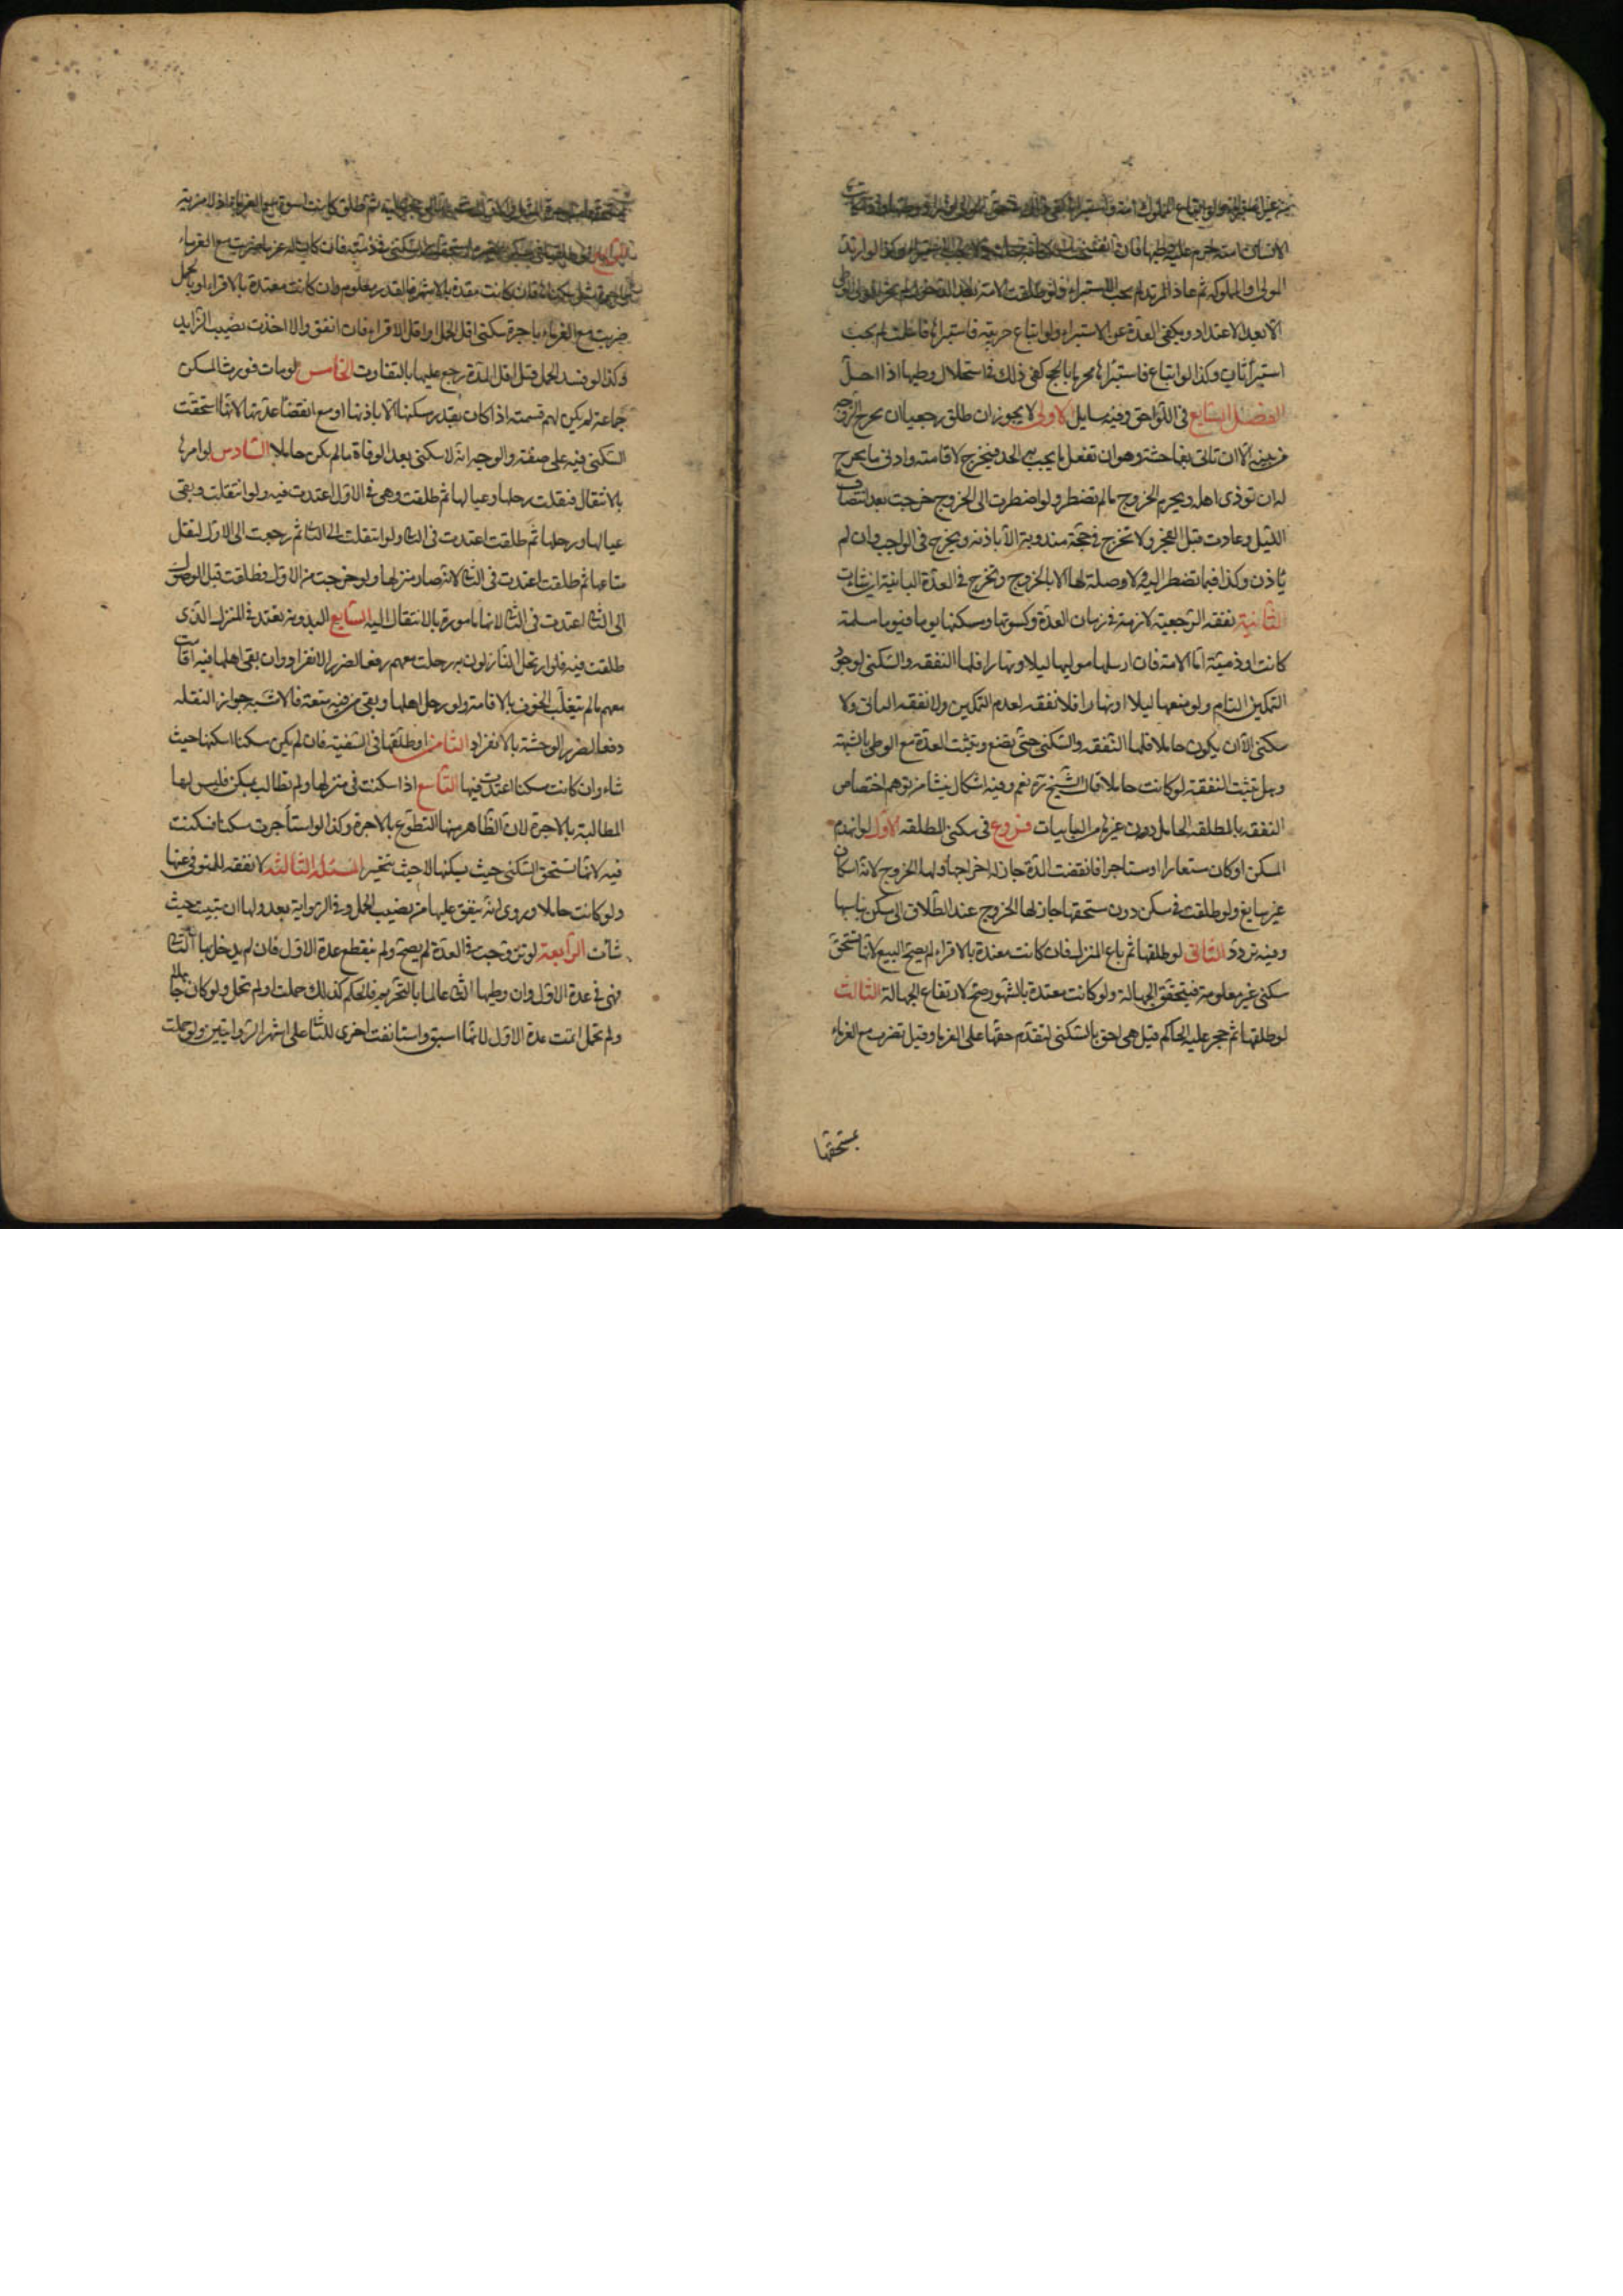 الاستبراء ولو طلقت الامة بعد الدخول لم يجز للمولى الوطى
الا بعد الاعتداد ويكفى العدة عن الاستبراء ولو ابتاع حربية فاستبراها فاسلمت لم يجب
استبرأ ثان وكذا لو ابتاع فاستبراها محرما بالحج كفى ذلك فى استحلال وطيها اذا احل
الفصل السابع فى اللواحق وفيه مسايل الاولى لا يجوز ان طلق رجعيا ان يخرج الزوجه
من بيته الا ان تاتى بفاحشة وهو ان تفعل ما يجب به الحد فيخرج لاقامته وادنى ما يخرج
له ان توذى اهله ويحرم الخروج مالم تضطر ولو اضطرت الى الخروج خرجت بعد انتصاف
الليل وعادت قبل الفجر ولا تخرج فى حجة مندوبة الا باذنه ويخرج فى الواجب وان لم
ياذن وكذا فيما تضطر اليه ولا وصلة لها الا بالخروج وتخرج فى العدة الباينة اين شاءت
الثانية نفقة الرجعية لازمة فى زمان العدة وكسوتها ومسكنها يوما فيوما مسلمة
كانت او ذمية اما الامة فان ارسلها موليها ليلا ونهارا فلها النفقه والسكنى لوجود
التمكين التام ولو منعها ليلا او نهارا فلا نفقه لعدم التمكين ولا نفقه للباين ولا
سكنى الا ان يكون حاملا فلها النفقه والسكنى حتى تضع وتثبت العدة مع الوطى بالشبهة
وهل تثبت النفقة لو كانت حاملا قال الشيخ ره نعم وفيه اشكال ينشا من توهم اختصاص
النفقه بالمطلقه الحامل دون غيرها من الباينات فروع فى سكنى المطلقه الاول لو انهدم
المسكن او كان مستعارا او مستاجرا فانقضت المدة جاز له اخراجها ولها الخروج لانه اسكان
غير سايغ ولو طلقت فى مسكن دون مستحقها جاز لها الخروج عند الطلاق الى مسكن يناسبها
وفيه تردد الثانى لو طلقها ثم باع المنزل فان كانت معتدة بالاقراء لم يصح البيع لانها تستحق
سكنى غير معلومة فيتحقق الجهالة ولو كانت معتدة بالشهور صح لارتفاع الجهالة الثالث
لو طلقها ثم حجر عليه الحاكم قيل هى احق بالسكنى لتقدم حقها على الغرماء وقيل تضرب مع الغرماء
بمستحقها
ثم طلق كانت اسوة مع الغرماء اذ لا مزية
الرابع
فان كانت معتدة بالاشهر فالقدر معلوم وان كانت معتدة بالاقراء او بالحمل
ضربت مع الغرماء باجرة سكنى اقل الحمل او اقل الاقراء فان اتفق والا اخذت نصيب الزايد
وكذا لو فسد الحمل قبل اقل المدة رجع عليها بالتفاوت الخامس لو مات فورث المسكن
جماعة لم يكن لهم قسمته اذا كان بقدر مسكنها الا باذنها او مع انقضا عدتها لانها استحقت
السكنى فيه على صفته والوجه انه لا سكنى بعد الوفاة مالم تكن حاملا السادس لو امرها
بالانتقال فنقلت رحلها وعيالها ثم طلقت وهى فى الاول اعتدت فيه ولو انتقلت وبقى
عيالها ورحلها ثم طلقت اعتدت فى الثانى ولو انتقلت الى الثانى ثم رجعت الى الاول لنقل
متاعها ثم طلقت اعتدت فى الثانى لانه صار منزلها ولو خرجت من الاول فطلقت قبل الوصول
الى الثانى اعتدت فى الثانى لانها مامورة بالانتقال اليه السابع البدوية تعتد فى المنزل الذى
طلقت فيه فلو ارتحل النازلون به رحلت معهم رفعا لضرر الانفراد وان بقى اهلها فيه اقامت
معهم مالم يتغلب الخوف بالاقامة ولو رحل اهلها وبقى من فيه منعة فالاشبه جواز النقله
دفعا لضرر الوحشة بالانفراد الثامن لو طلقها فى السفينة فان لم يكن مسكنا اسكنها حيث
شاء وان كانت مسكنا اعتدت فيها التاسع اذا سكنت فى منزلها ولم تطالب بمسكن فليس لها
المطالبة بالاجرة لان الظاهر منها التطوع بالاجرة وكذا لو استأجرت مسكنا فسكنت
فيه لانها تستحق السكنى حيث يسكنها لا حيث تتخير المسئلة الثالثه لا نفقه للمتوفى عنها
ولو كانت حاملا وروى انه ينفق عليها من نصيب الحمل وفى الرواية بعد ولها ان تبيت حيث
شائت الرابعة لو تزوجت فى العدة لم يصح ولم ينقطع عدة الاول فان لم يدخل بها الثانى
فهى فى عدة الاول وان وطيها الثانى عالما بالتحريم فالحكم كذلك حملت او لم تحمل ولو كان جاهلا
ولم تحمل اتمت عدة الاول لانها اسبق واستانفت اخرى للثانى على اشهر الروايتين ولو حملت